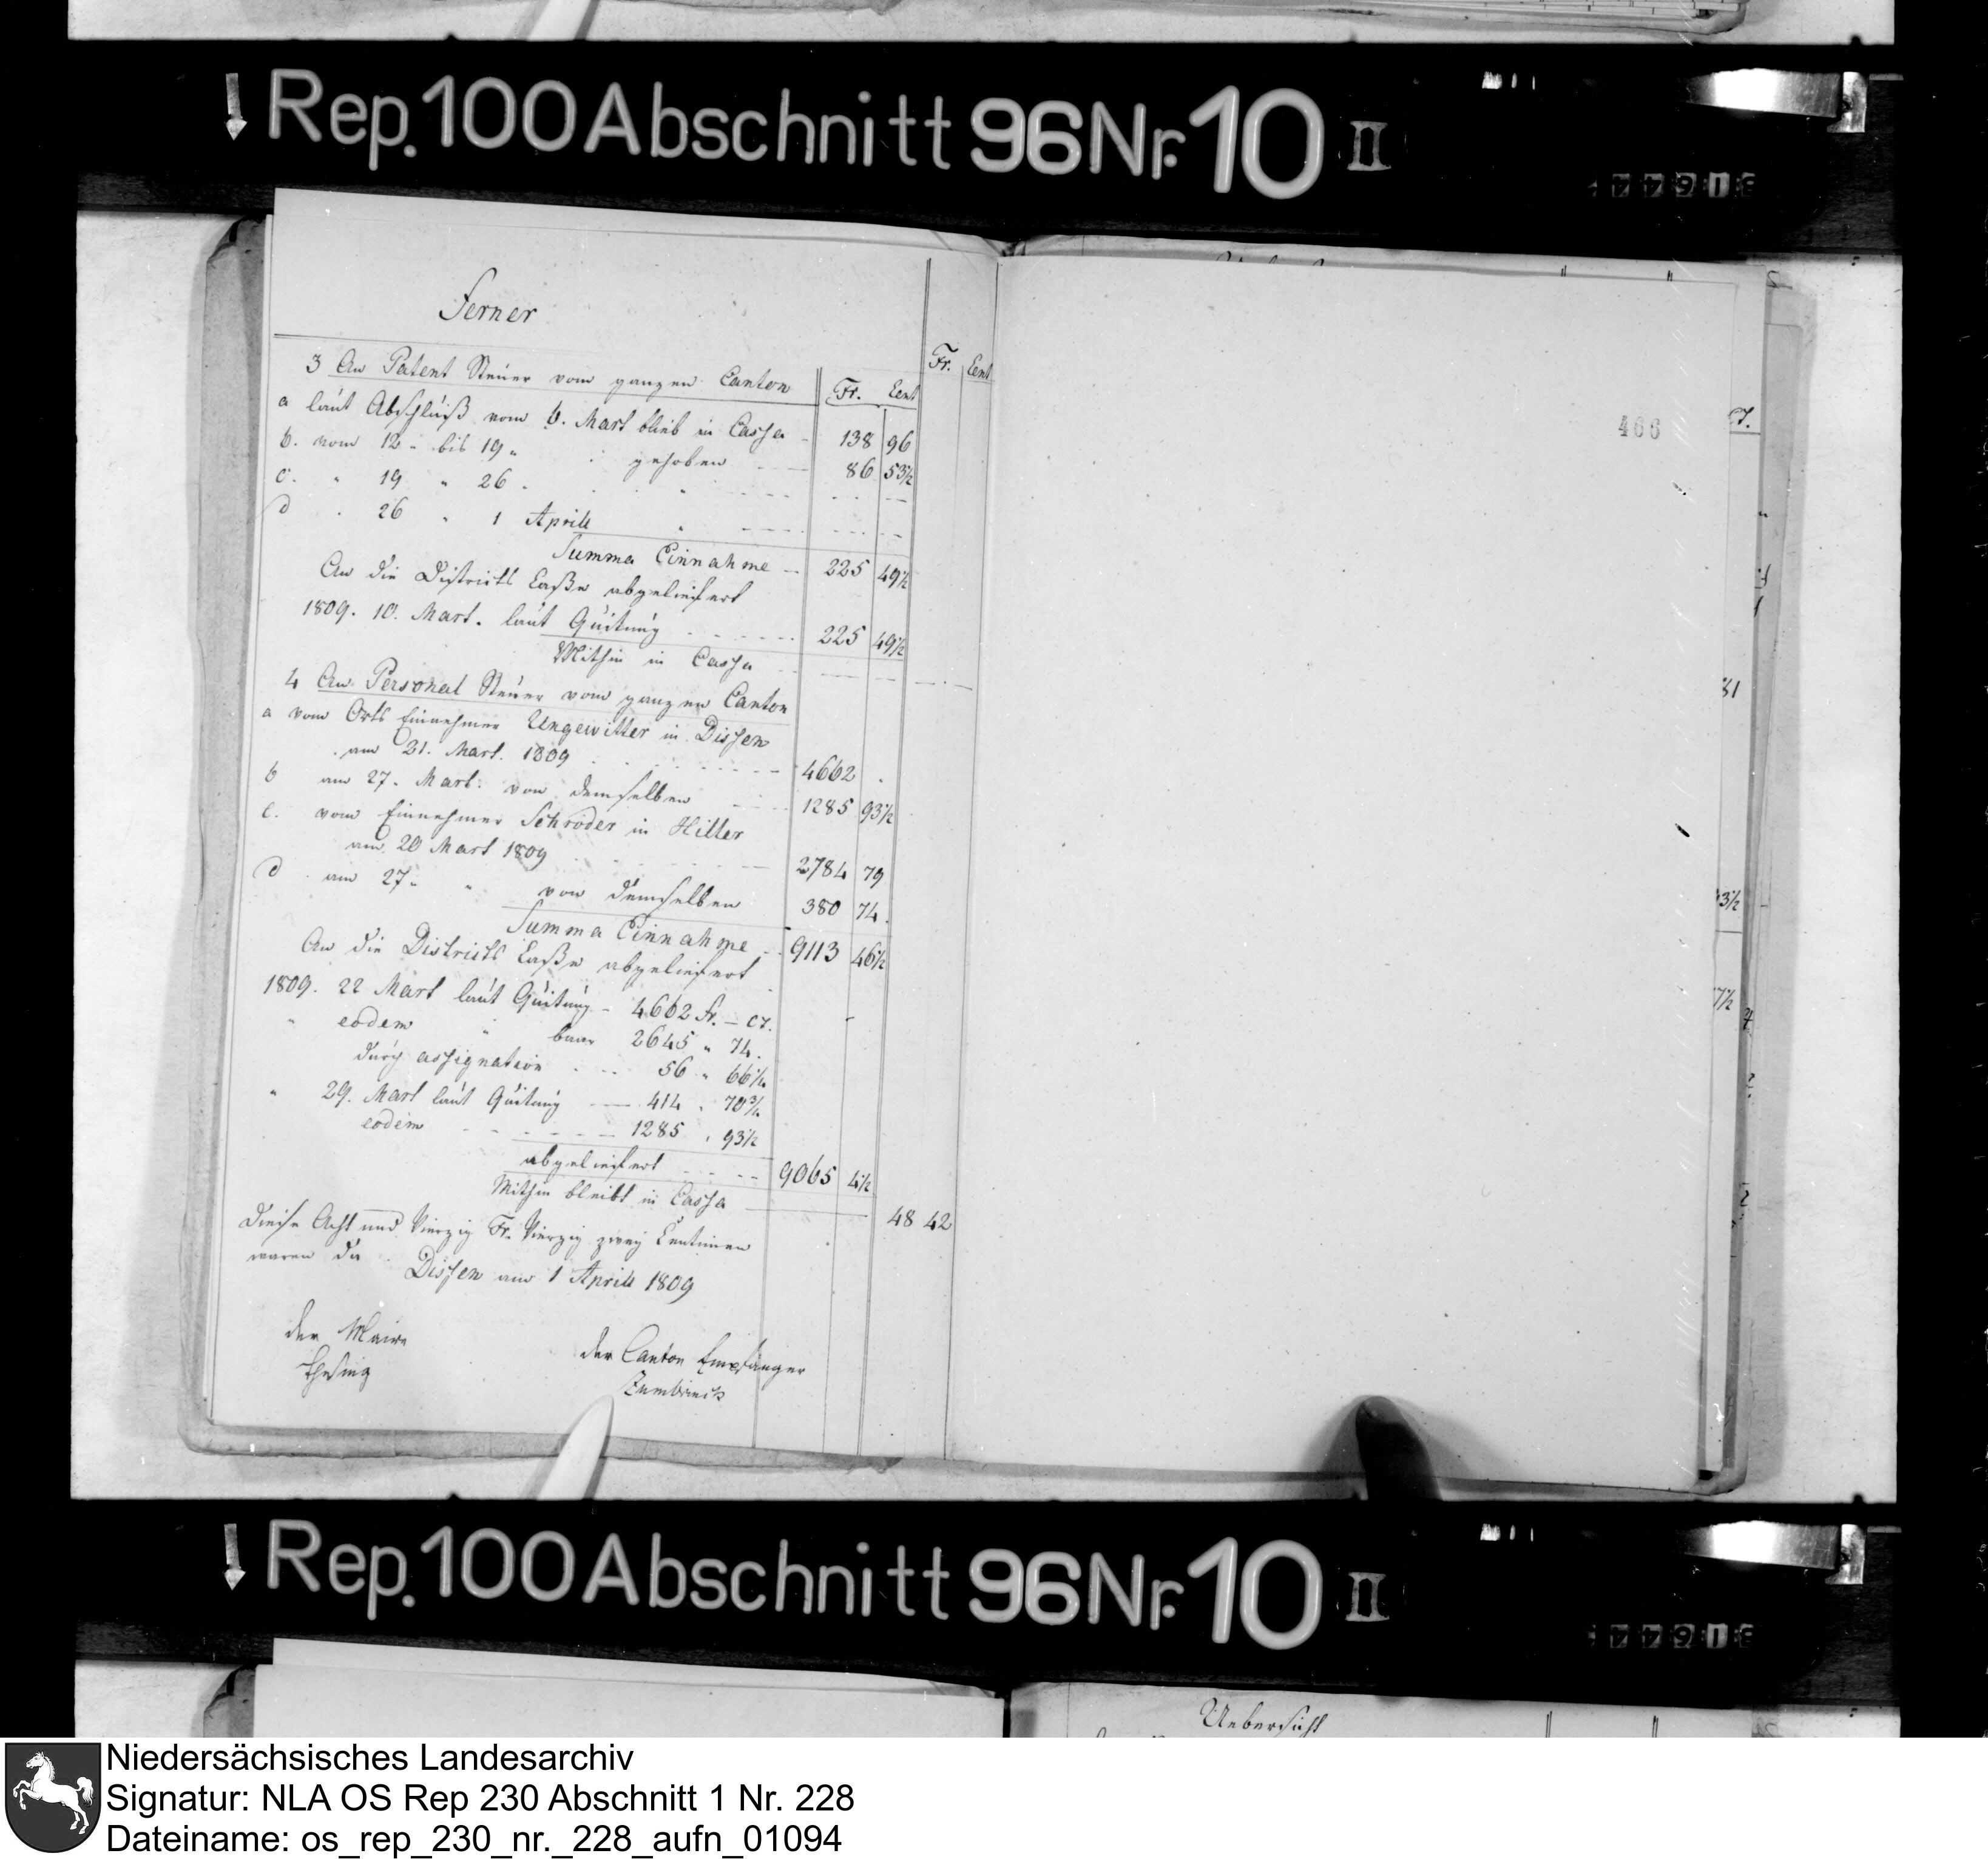 Rep. 100 Abschnitt 96 Nr. 10 II
Ferner
Fr. Cent
3 An Patent Steuer vom ganzen Canton Fr. Cent
a laut Abschluß vom 6. Mart blieb in Cassa 138 96
b. vom 12 " bis 19 " gehoben 86 53½
c. " 19 " 26 " "
d " 26 " 1 Aprill "
Summa Einnahme 225 49½
An die Districts Casse abgeliefert
1809. 10. Mart. laut Quitung 225 49½
Mithin in Cassa
4 An Personal Steuer vom ganzen Canton
a vom Orts Einnehmer Ungewitter in Dissen
am 21. Mart. 1809 4662 .
b am 27. Mart: von demselben 1285 93½
c. vom Einnehmer Schröder in Hilter
am 20 Mart 1809 2784 79
d am 27 " " von demselben 380 74.
Summa Einnahme 9113 46½
An die Districts Casse abgeliefert
1809. 22 Mart laut Quitung 4662 fr. — ct.
" eodem " baar 2645 " 74.
durch assignation 56 " 66¼
" 29. Mart laut Quitung 414 " 70¾
eodem 1285 " 93½
abgeliefert 9065 4½
Mithin bleibt in Cassa 48 42
Diese Acht und Vierzig Fr. Vierzig zwey Centimen
waren da
Dissen am 1 Aprill 1809
der Maire
der Canton Empfänger
466
ct.
81
3½
7½
Rep. 100 Abschnitt 96 Nr. 10 II
Uebersicht
Niedersächsisches Landesarchiv
Signatur: NLA OS Rep 230 Abschnitt 1 Nr. 228
Dateiname: os_rep_230_nr._228_aufn_01094